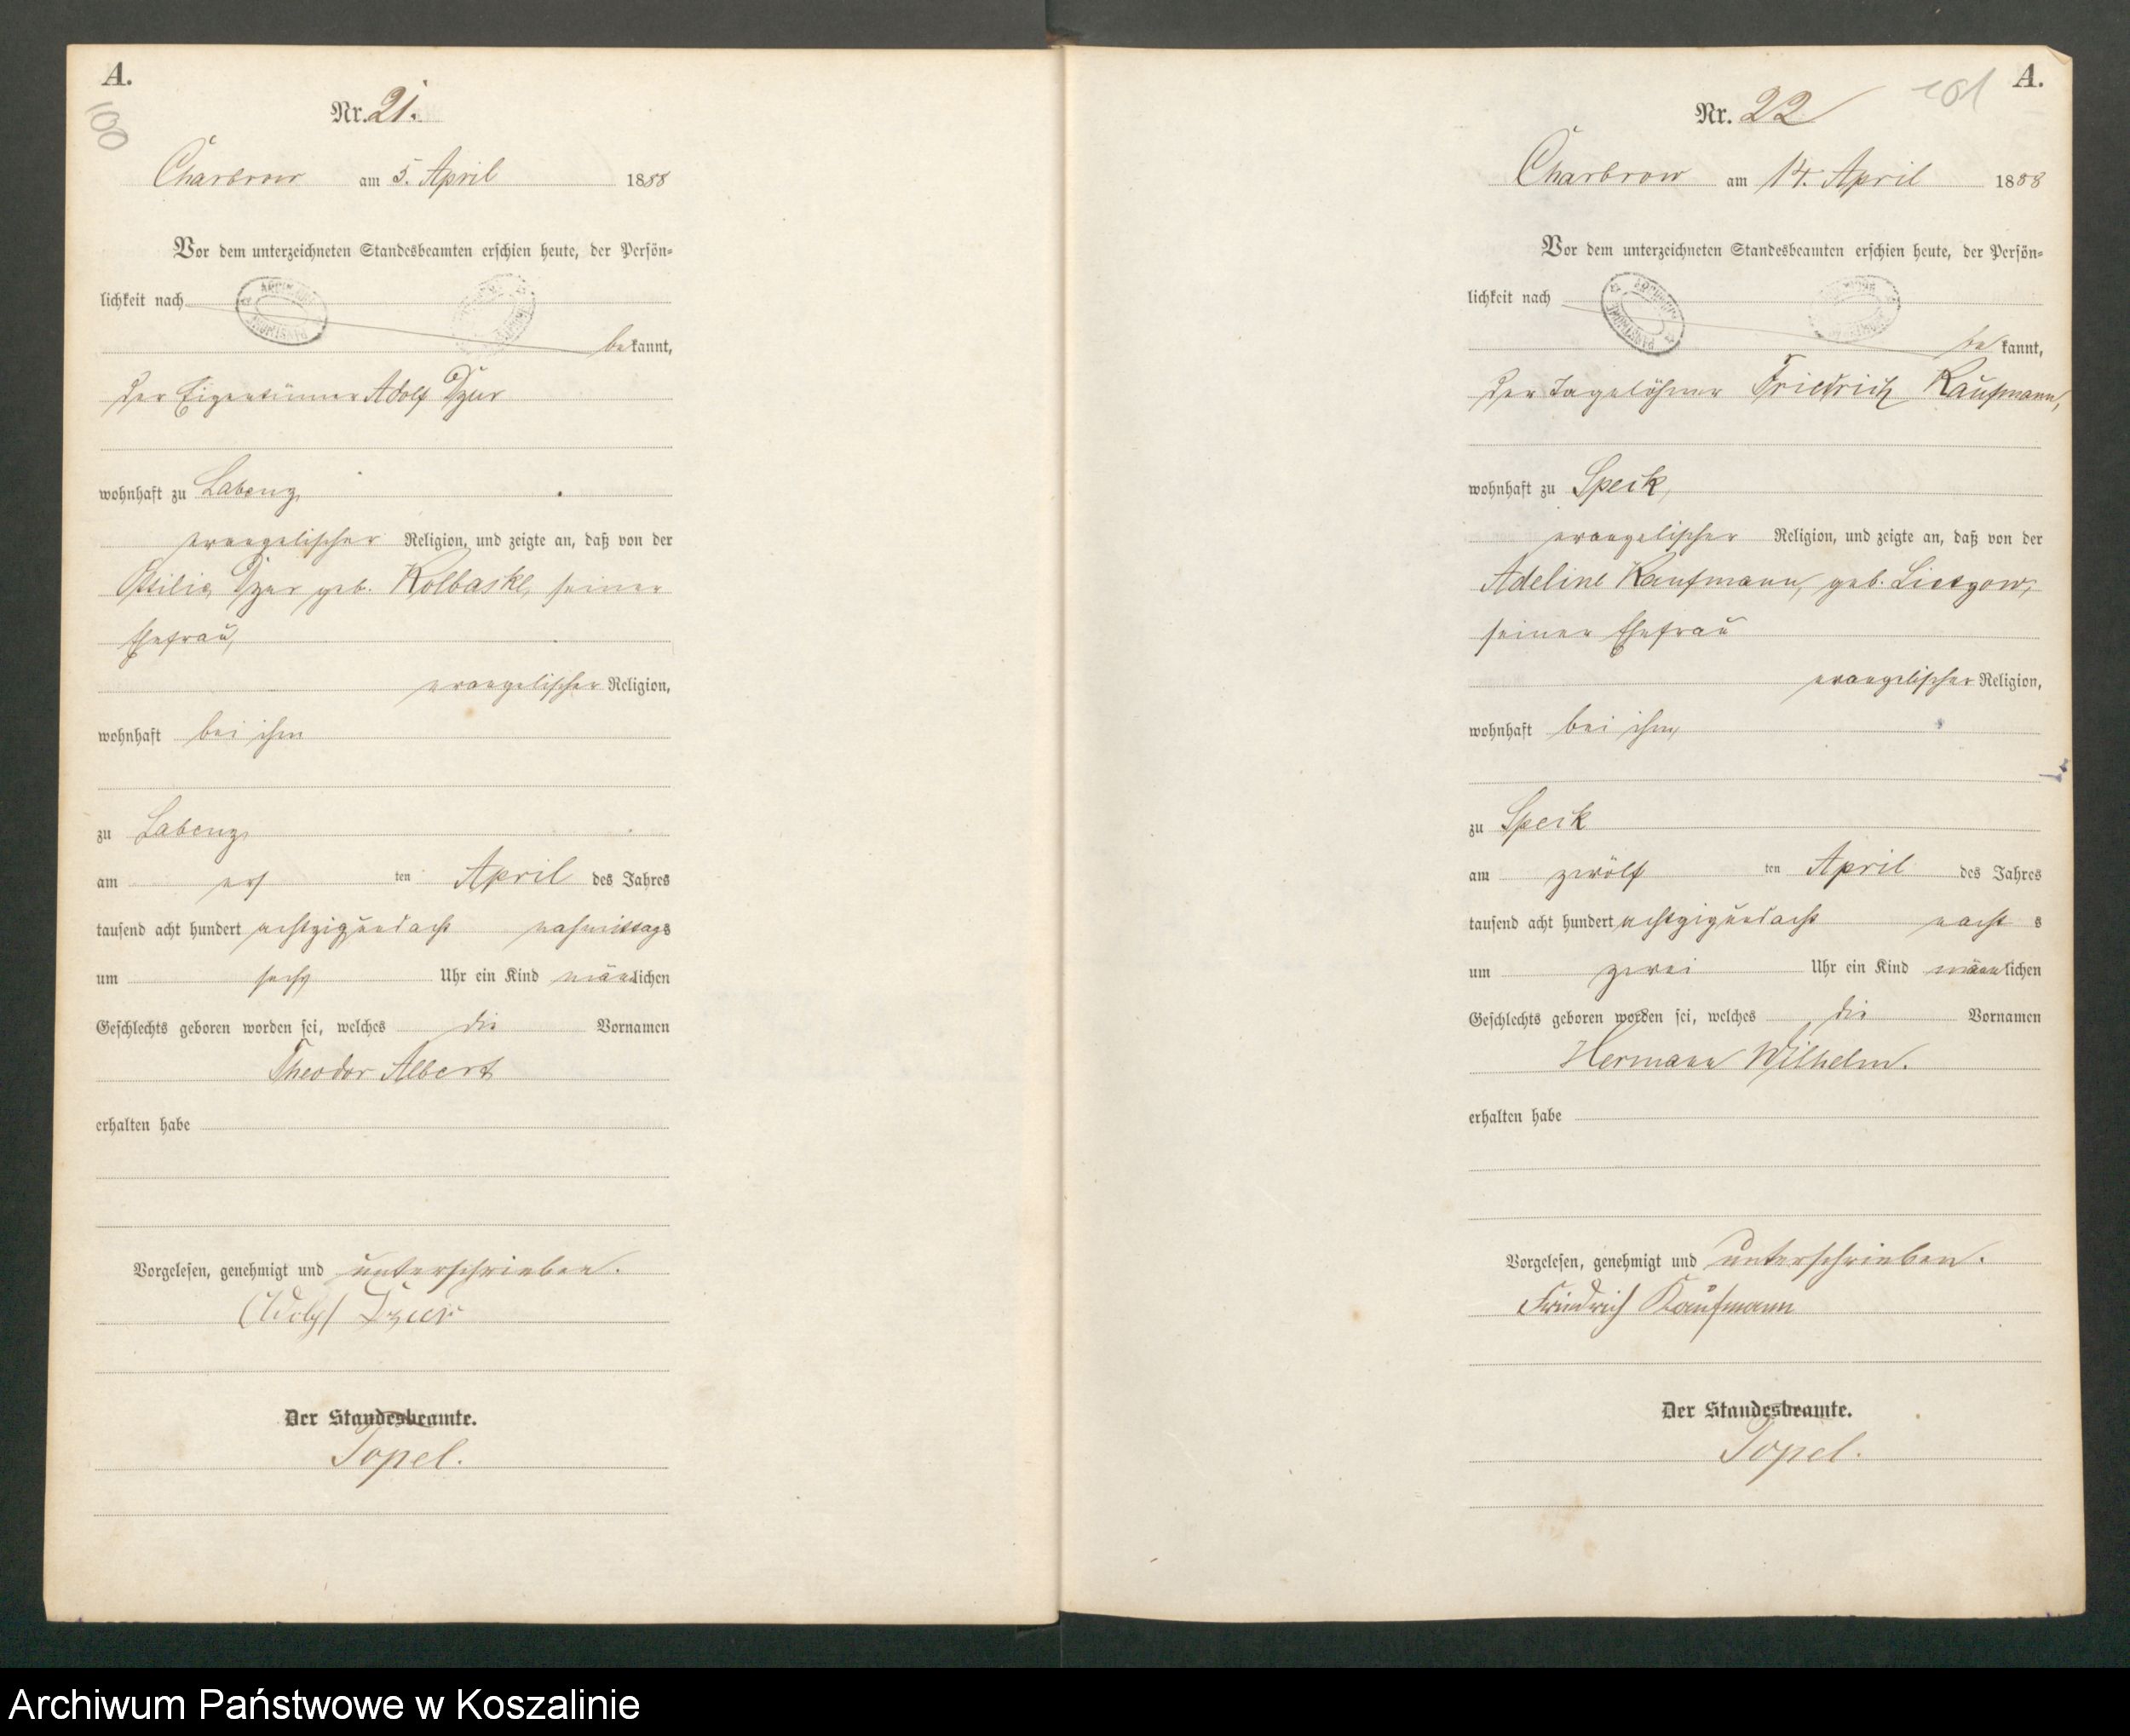 A.
100
Nr. 21.
Charbrow am 5. April 1888
Vor dem unterzeichneten Standesbeamten erschien heute, der Persön=
lichkeit nach
bekannt,
der Eigentümer Adolf Dzur
wohnhaft zu Labenz,
evangelischer Religion, und zeigte an, daß von der
Ottilie Dzur geb. Kolbaske, seiner
Ehefrau,
evangelischer Religion,
wohnhaft bei ihm
zu Labenz,
am ers ten April des Jahres
tausend acht hundert achtzigundacht nachmittags
um sechs Uhr ein Kind männlichen
Geschlechts geboren worden sei, welches die Vornamen
Theodor Albert
erhalten habe
Vorgelesen, genehmigt und unterschrieben.
Adolf Dzur
Der Standesbeamte.
Topel.
A.
101
Nr. 22
Charbrow am 14. April 1888
Vor dem unterzeichneten Standesbeamten erschien heute, der Persön=
lichkeit nach
bekannt,
der Tagelöhner Friedrich Kaufmann,
wohnhaft zu Speck,
evangelischer Religion, und zeigte an, daß von der
Adeline Kaufmann, geb. Lietzow,
seiner Ehefrau
evangelischer Religion,
wohnhaft bei ihm,
zu Speck
am zwölf ten April des Jahres
tausend acht hundert achtzigundacht nachts
um zwei Uhr ein Kind männlichen
Geschlechts geboren worden sei, welches die Vornamen
Hermann Wilhelm.
erhalten habe
Vorgelesen, genehmigt und unterschrieben.
Friedrich Kaufmann
Der Standesbeamte.
Topel.
Archiwum Państwowe w Koszalinie